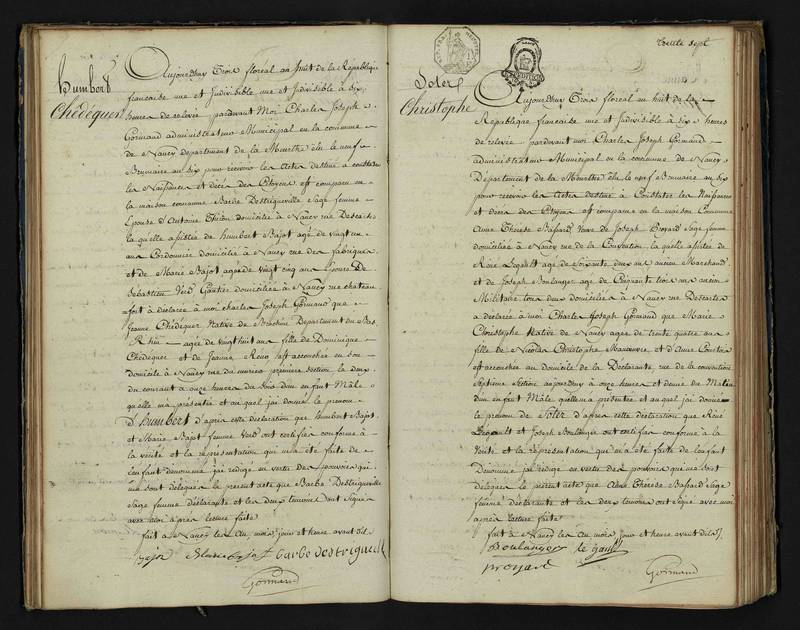 humbert
Chédéguen
Aujourdhuy Trois floréal an huit de la Republique
française une et Indivisible une et Indivisible à six
heures de relevée pardevant Moi Charles Joseph
Gormand administrateur Municipal en la commune
de Nancy departement de la Meurthe élu le neuf
Brumaire an six pour recevoir les Actes destiné à constater
les Naissances et décès des Citoyens est comparu en
la maison commune Barbe Destriqueville Sage femme
Epouse d'Antoine domiciliée à Nancy rue Descartes
laquelle assistée de humbert Bajot agé de vingt un
ans Cordonnier domicilié à Nancy rue des fabriques
et de Marie Bajot agée de vingt cinq ans Epouse De
Sebastien Gautier domiciliée à Nancy rue chateau
fort à declarée à moi charles Joseph Gormand que
Jeanne Chédéguer Native de Departement du Bas
Rhin agée de vingt huit ans fille de Dominique
Chédéguer et de Jeanne est accouchée en son
domicile à Nancy rue du première section le deux
du courant à onze heures du soir d'un enfant Mâle
qu'elle m'a présentée et auquel jai donné le prenom
D'humbert d'après cette declaration que humbert Bajot
et Marie Bajot femme ont certifiée conforme à
la verité et la représentation qui m'a été faite de
l'enfant denommé jai rédigé en vertu des pouvoirs qui
me sont delegués le present acte que Barbe Destriqueville
Sage femme déclarante et les deux temoins ont signé
avec moi après lecture faite
fait à Nancy les an, mois, jour et heure avant dits
Bajot Marie Bajot barbe destriqueville
Gormand
trente sept
Soter
Christophe
Aujourdhuy Trois floréal an huit de la
République française une et Indivisible à six heures
de relevée pardevant moi Charles Joseph Gormand
administrateur Municipal en la commune de Nancy
Département de la Meurthe élu le neuf Brumaire an six
pour recevoir les Actes destiné à Constater les Naissances
et décès des Citoyens est comparue en la maison Commune
Anne Thérèse Bassard Veuve de Joseph Sage femme
domiciliée à Nancy rue de la Convention, laquelle assistée de
René Legault agé de Soixante deux ans ancien Marchand
et de Joseph Boulanger agé de Cinquante trois ans ancien
Militaire tous deux domiciliés à Nancy rue Descartes
a déclarée à moi Charles Joseph Gormand que Marie
Christophe Native de Nancy agée de trente quatre ans
fille de Nicolas Christophe Manœuvre et d'Anne
est accouchée au domicile de la Déclarante, rue de la convention
Septième Section aujourdhuy à onze heures et demie du Matin
d'un enfant Mâle qu'elle m'a présentée et auquel jai donné
le prenom de Soter d'après cette déclaration que René
Legault et Joseph Boulanger ont certifiée conforme à la
Verité et la représentation qui m'a été faite de l'enfant
Denommé jai rédigé en vertu des pouvoirs qui me sont
delegués le présent acte que Anne Thérèse Bassard Sage
femme déclarante et les deux temoins ont signé avec moi
après lecture faite
fait à Nancy les An, mois, jour et heure avant dits
Boulanger le gault
Gormand